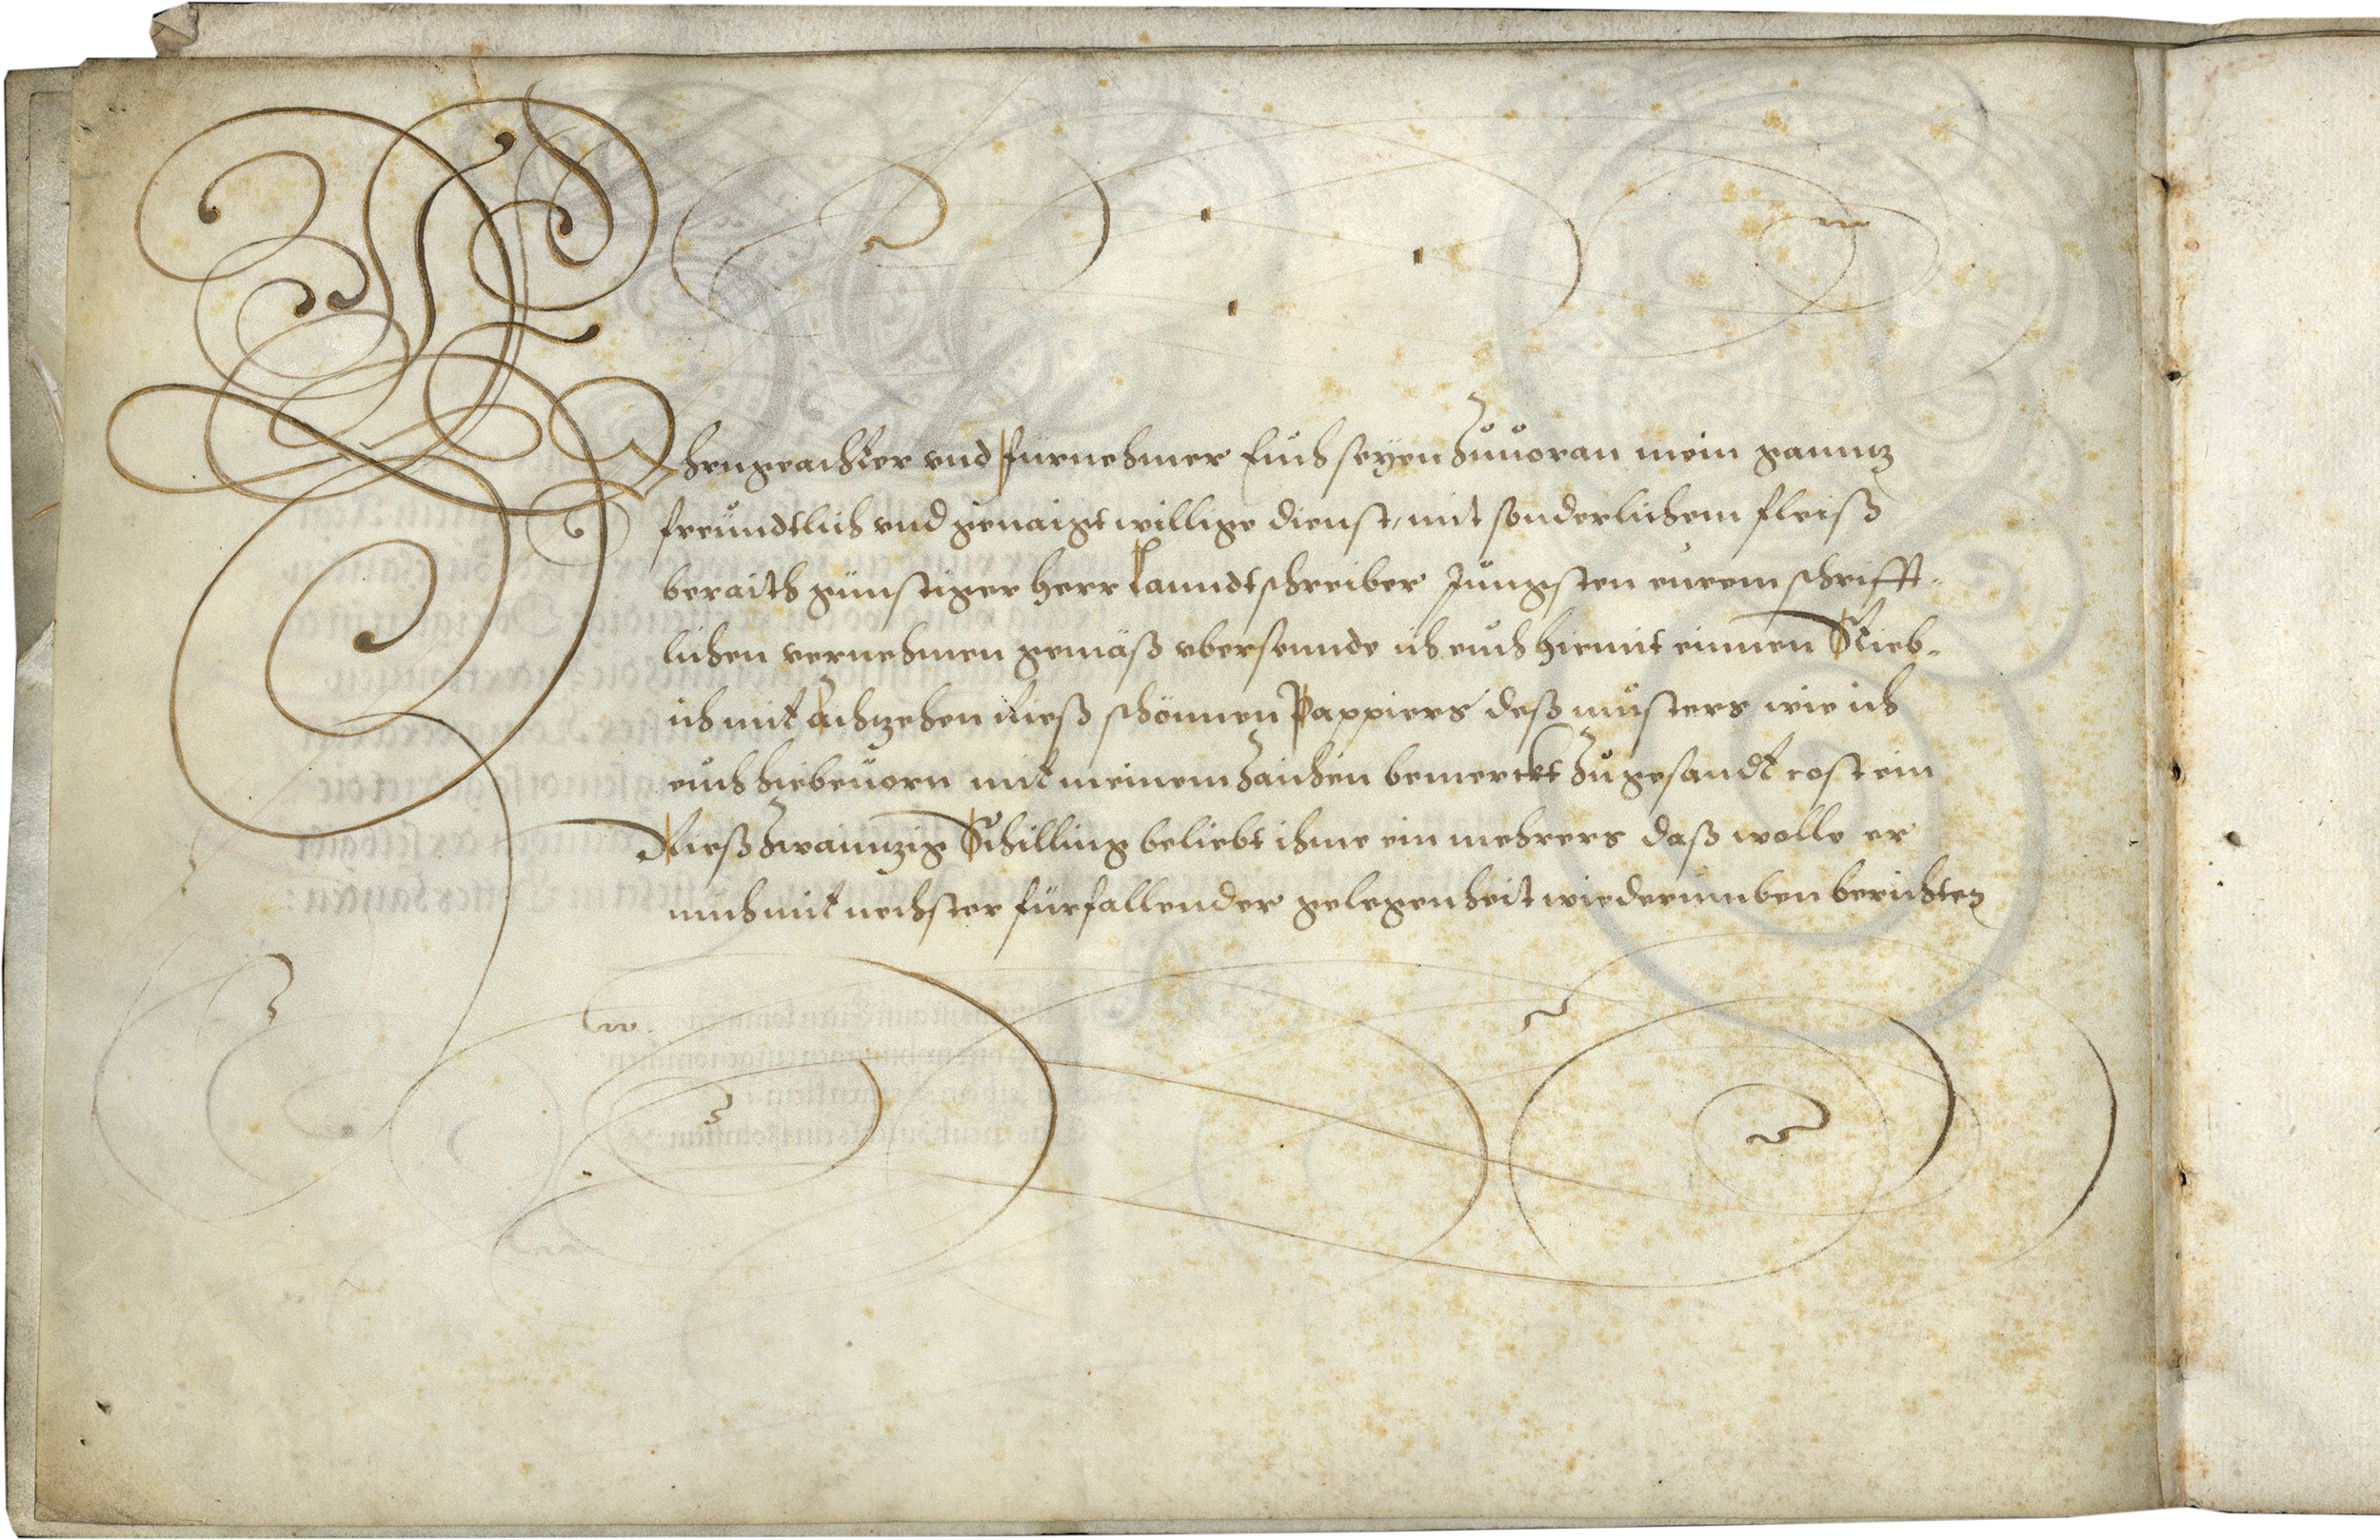 Ehrngeachter vnd fürnehmer Euch seyen zuuoran mein ganntz
freundtlich vnd genaigt willige dienst, mit sonderlichem fleiß
beraith günstiger herr Lanndtschreiber Jungsten eurem schrifft-
lichen vernehmen gemäß vbersennde ich euch hiemit einnen
ich mit Achzehen Rieß schönnen Pappiers deß musters wie ich
euch hiebeuorn mit meinem zaichen bemerckt zugesandt cost ein
Rieß zwainnzig Schilling beliebt ihme ein mehrers daß wolle er
mich mit nechster fürfallender gelegenheit wiederumben berichten